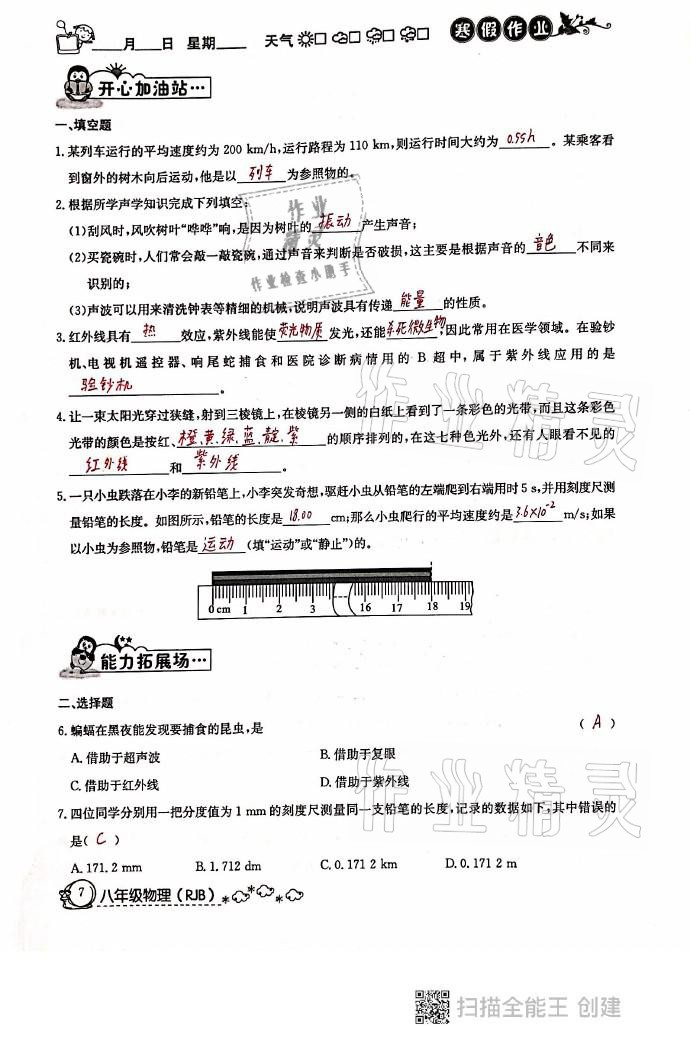 ____月___日 星期____ 天气 □ □ □ □ 寒假作业
开心加油站…
一、填空题
1. 某列车运行的平均速度约为 200 km/h,运行路程为 110 km,则运行时间大约为 0.55h 。某乘客看
到窗外的树木向后运动,他是以 列车 为参照物的。
2. 根据所学声学知识完成下列填空:
(1)刮风时,风吹树叶“哗哗”响,是因为树叶的 振动 产生声音;
(2)买瓷碗时,人们常会敲一敲瓷碗,通过声音来判断是否破损,这主要是根据声音的 音色 不同来
识别的;
(3)声波可以用来清洗钟表等精细的机械,说明声波具有传递 能量 的性质。
3. 红外线具有 热 效应,紫外线能使 荧光物质 发光,还能 杀死微生物 ,因此常用在医学领域。在验钞
机、电视机遥控器、响尾蛇捕食和医院诊断病情用的 B 超中,属于紫外线应用的是
验钞机 。
4. 让一束太阳光穿过狭缝,射到三棱镜上,在棱镜另一侧的白纸上看到了一条彩色的光带,而且这条彩色
光带的颜色是按红、橙、黄、绿、蓝、靛、紫 的顺序排列的,在这七种色光外,还有人眼看不见的
红外线 和 紫外线 。
5. 一只小虫跌落在小李的新铅笔上,小李突发奇想,驱赶小虫从铅笔的左端爬到右端用时 5 s,并用刻度尺测
量铅笔的长度。如图所示,铅笔的长度是 18.00 cm;那么小虫爬行的平均速度约是 3.6×10⁻² m/s;如果
以小虫为参照物,铅笔是 运动 (填“运动”或“静止”)的。
0 cm 1 2 3 16 17 18 19
能力拓展场…
二、选择题
6. 蝙蝠在黑夜能发现要捕食的昆虫,是 ( A )
A. 借助于超声波 B. 借助于复眼
C. 借助于红外线 D. 借助于紫外线
7. 四位同学分别用一把分度值为 1 mm 的刻度尺测量同一支铅笔的长度,记录的数据如下,其中错误的
是( C )
A. 171. 2 mm B. 1. 712 dm C. 0. 171 2 km D. 0. 171 2 m
7 八年级物理(RJB)
作业精灵
作业检查小助手
作业精灵
作业精灵
扫描全能王 创建